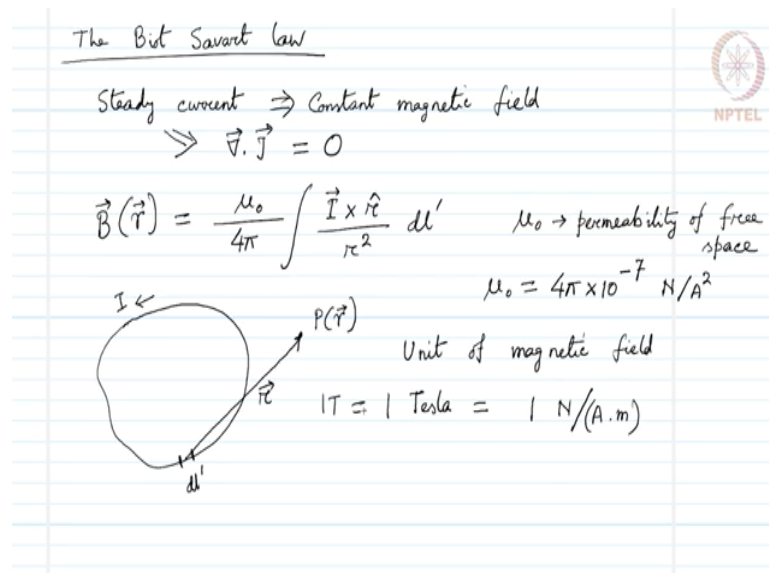 The Biot Savart law
NPTEL
Steady current ⇒ Constant magnetic field
≫ ∇⃗.J⃗ = 0
B⃗(r⃗) = μ₀/4π ∫ (I⃗ × r̂)/r² dl′
μ₀ → permeability of free space
μ₀ = 4π×10⁻⁷ N/A²
I ←
P(r⃗)
Unit of magnetic field
r⃗
1T = 1 Tesla = 1 N/(A.m)
dl′